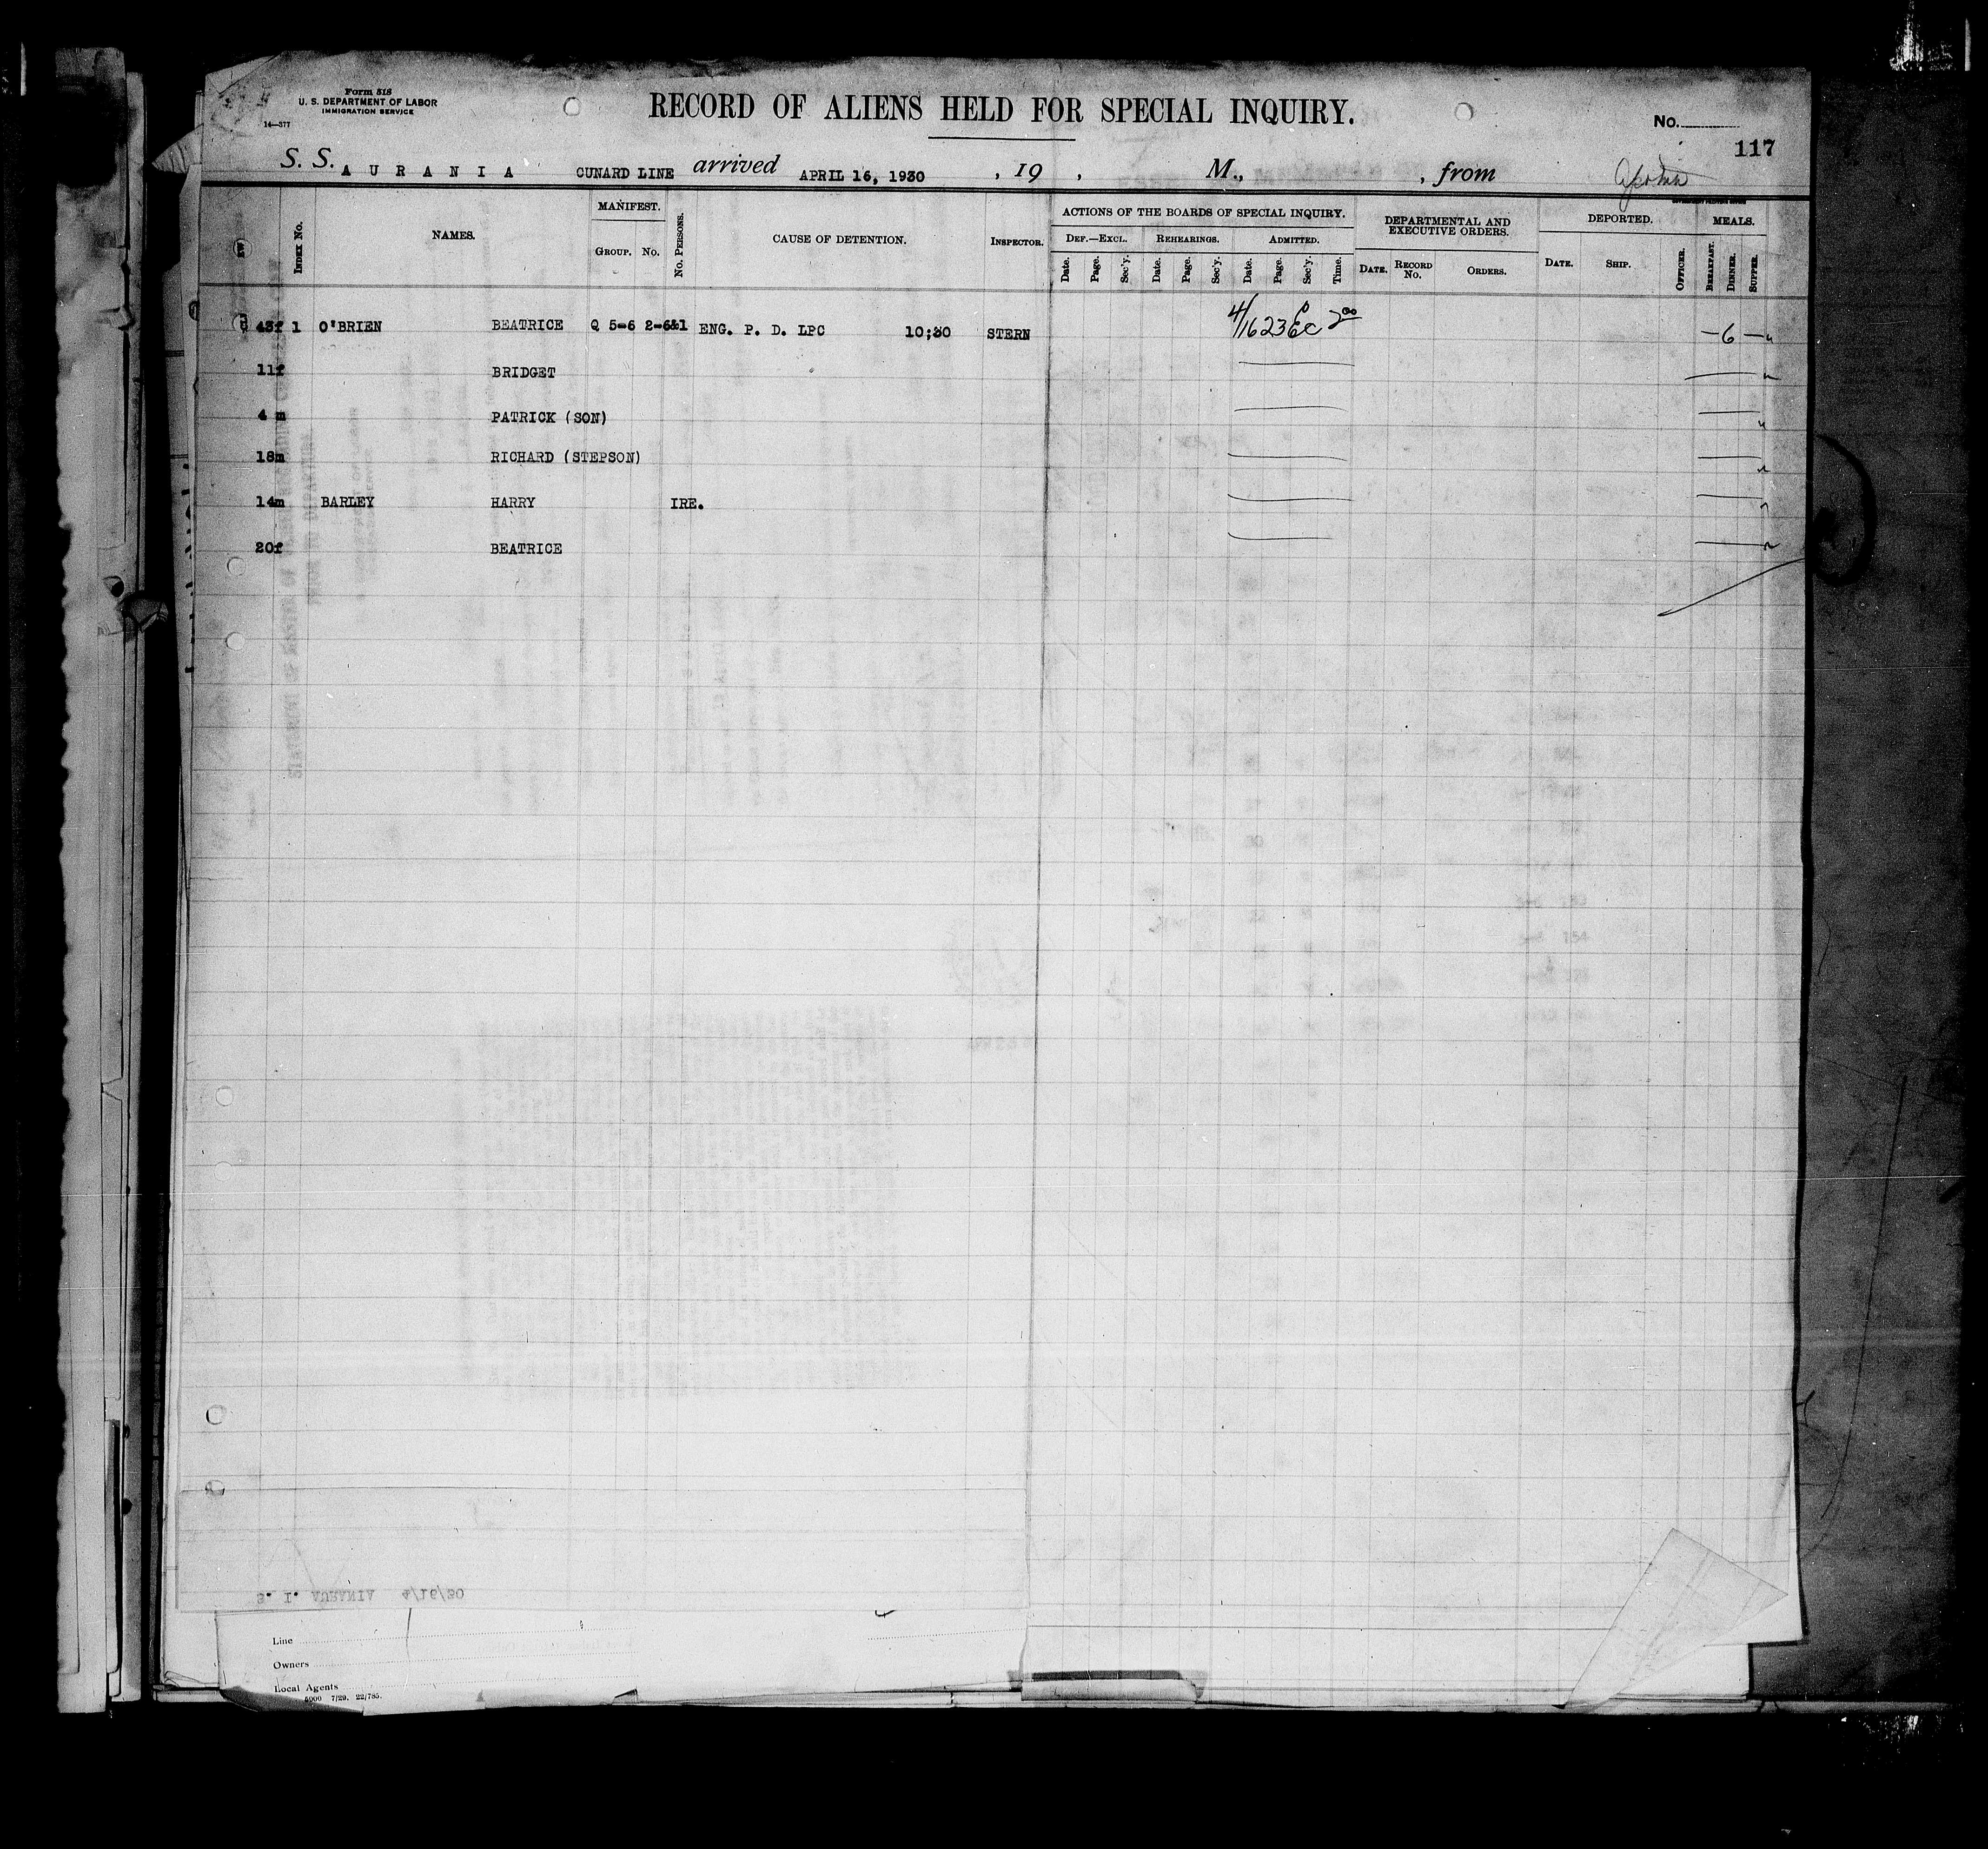 Form 518
U. S. DEPARTMENT OF LABOR
IMMIGRATION SERVICE
14—377
RECORD OF ALIENS HELD FOR SPECIAL INQUIRY.
No.
117
S. S. AURANIA CUNARD LINE arrived APRIL 16, 1930 , 19 , M., , from
INDEX No. NAMES. MANIFEST. GROUP. No. No. PERSONS. CAUSE OF DETENTION. INSPECTOR. ACTIONS OF THE BOARDS OF SPECIAL INQUIRY. DEPARTMENTAL AND EXECUTIVE ORDERS. DEPORTED. MEALS.
DEF.—EXCL. REHEARINGS. ADMITTED.
Date. Page. Sec'y. Date. Page. Sec'y. Date. Page. Sec'y. Time. DATE. RECORD No. ORDERS. DATE. SHIP. OFFICER. BREAKFAST. DINNER. SUPPER.
43f 1 O'BRIEN BEATRICE Q 5-6 2-6&1 ENG. P. D. LPC 10;30 STERN 4/16 23 EC 2 00 — 6 —
11f BRIDGET
4 m PATRICK (SON)
18m RICHARD (STEPSON)
14m BARLEY HARRY IRE.
20f BEATRICE
S. I. AURANIA 4/16/30
Line
Owners
Local Agents
5000 7/29, 22/785.